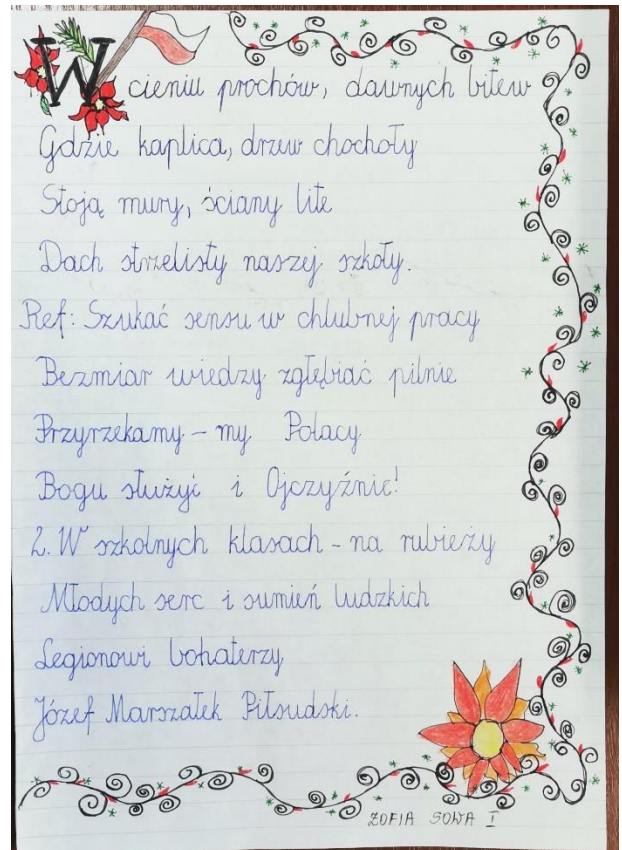 W cieniu prochów, dawnych bitew
Gdzie kaplica, drzew chochoły
Stoją mury, ściany lite
Dach strzelisty naszej szkoły.
Ref: Szukać sensu w chlubnej pracy
Bezmiar wiedzy zgłębiać pilnie
Przyrzekamy – my Polacy
Bogu służyć i Ojczyźnie!
2. W szkolnych klasach – na rubieży
Młodych serc i sumień ludzkich
Legionowi bohaterzy
Józef Marszałek Piłsudski.
ZOFIA SOWA I